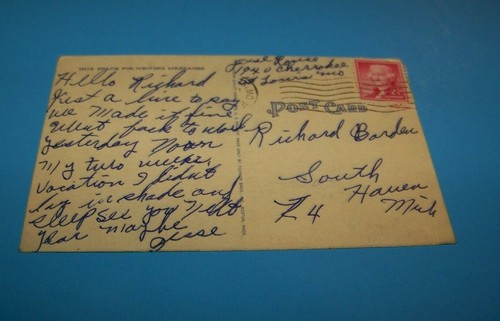 THIS SPACE FOR WRITING MESSAGES
Hello Richard
Just a line to say
we made it fine
Went back to work
yesterday
my two weeks
vacation I didnt
in shade and
sleep see you next
year maybe
Jesse
Jesse
Cherokee
St Louis Mo
POST CARD
Richard Borden
South
Haven
Z4
Mich